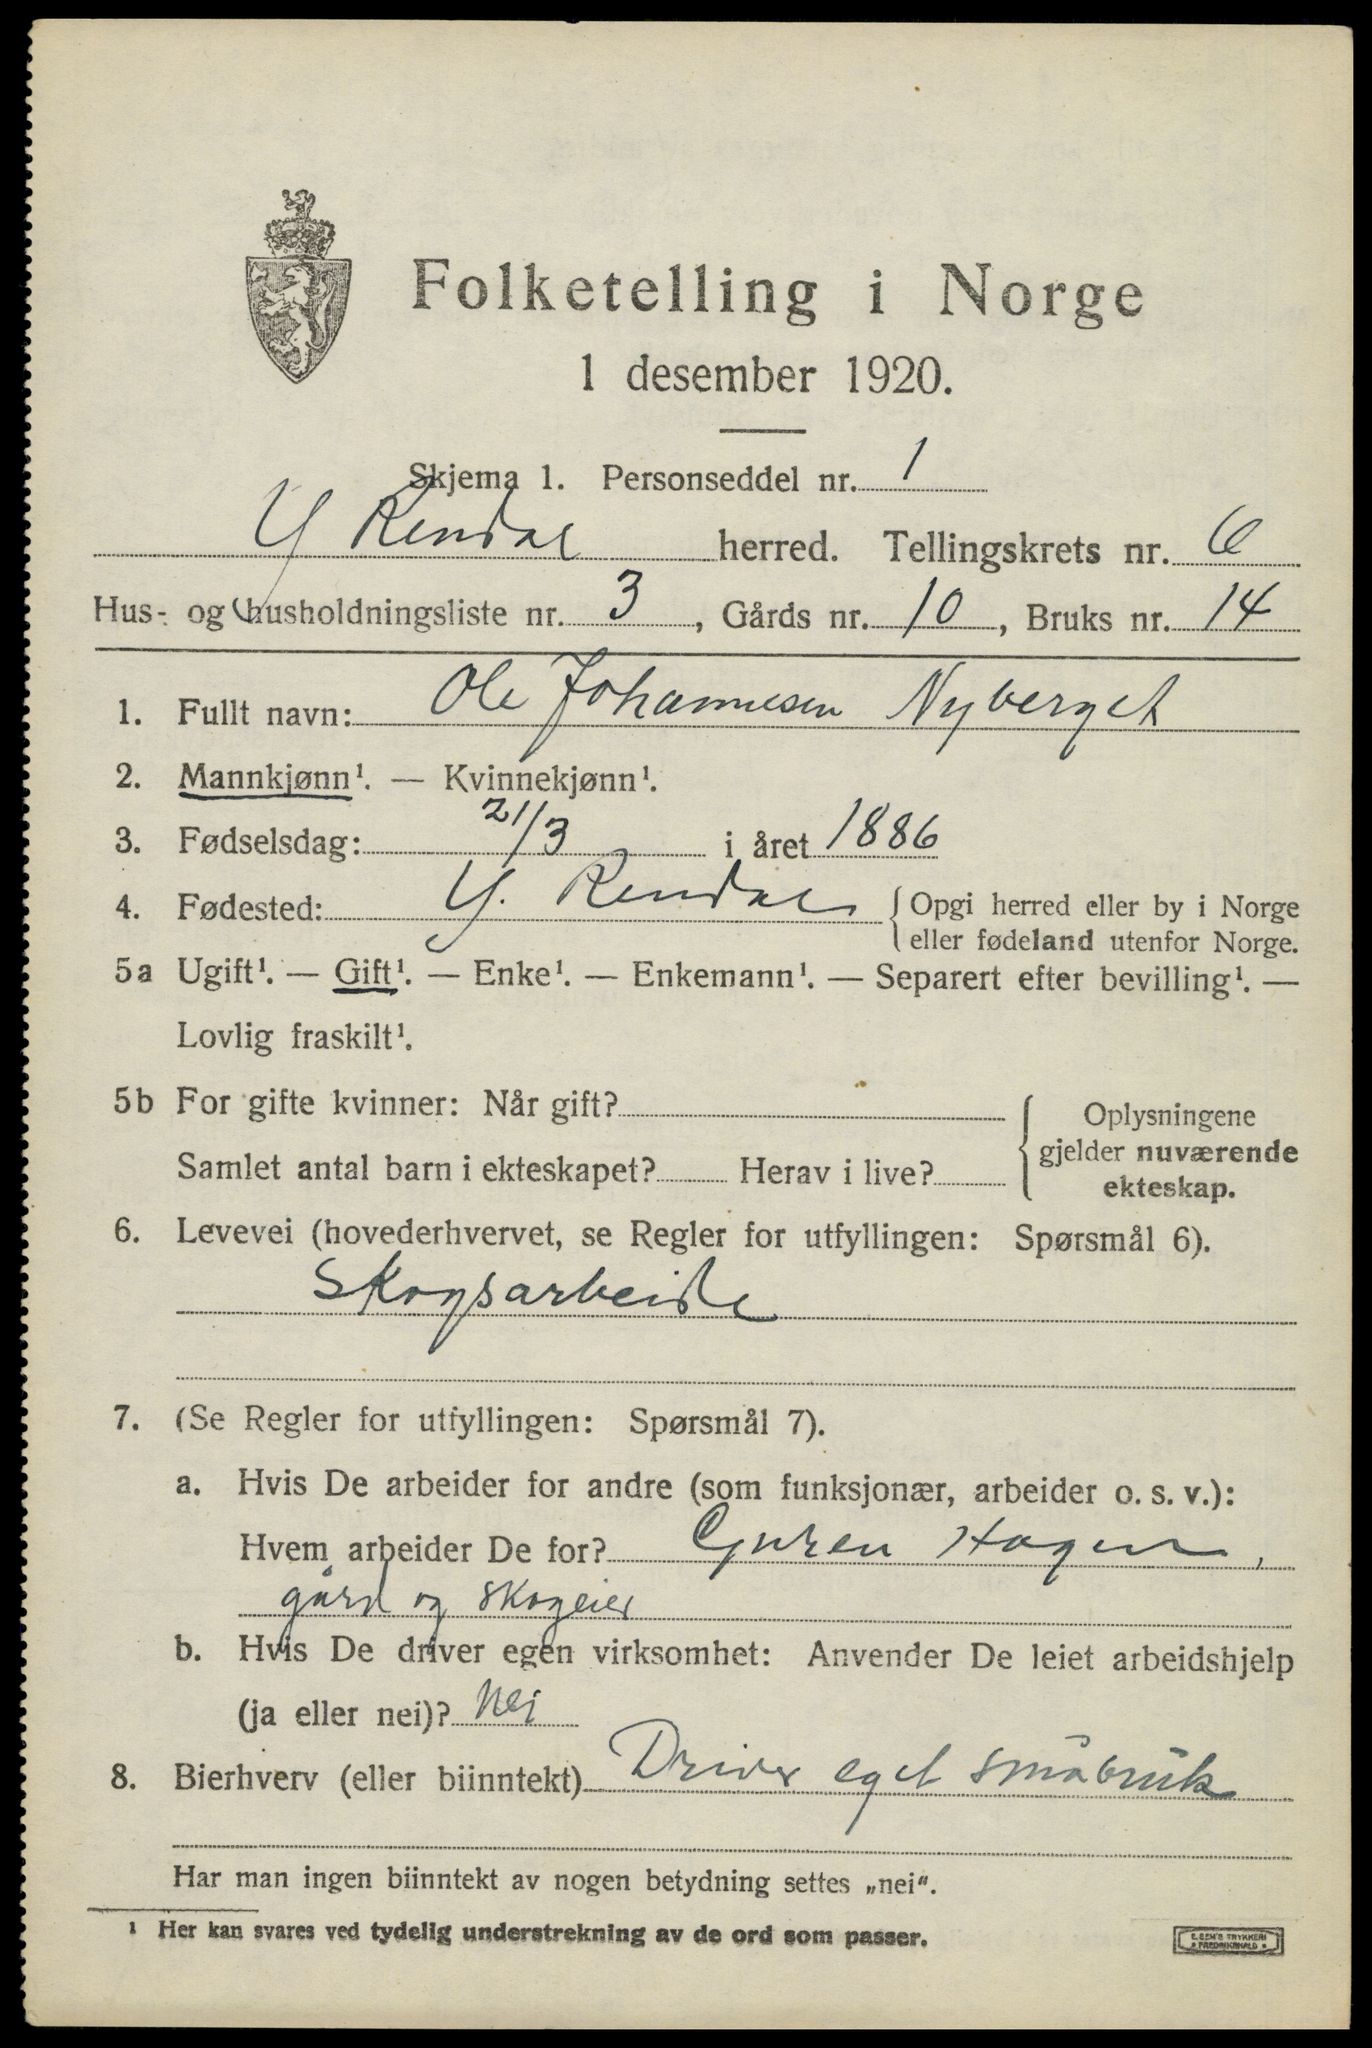 Folketelling i Norge
1 desember 1920.
Skjema 1. Personseddel nr. 1
Y Rendal herred. Tellingskrets nr. 6
Hus- og husholdningsliste nr. 3, Gårds nr. 10, Bruks nr. 14
1. Fullt navn: Ole Johannesen Nyberget
2. Mannkjønn¹. — Kvinnekjønn¹.
3. Fødselsdag: 21/3 i året 1886
4. Fødested: Y. Rendal { Opgi herred eller by i Norge
eller fødeland utenfor Norge.
5a Ugift¹. — Gift¹. — Enke¹. — Enkemann¹. — Separert efter bevilling¹. —
Lovlig fraskilt¹.
5b For gifte kvinner: Når gift? { Oplysningene
gjelder nuværende
Samlet antal barn i ekteskapet? Herav i live? ekteskap.
6. Levevei (hovederhvervet, se Regler for utfyllingen: Spørsmål 6).
Skogsarbeide
7. (Se Regler for utfyllingen: Spørsmål 7).
a. Hvis De arbeider for andre (som funksjonær, arbeider o. s. v.):
Hvem arbeider De for? Hagen,
gård og skogeier
b. Hvis De driver egen virksomhet: Anvender De leiet arbeidshjelp
(ja eller nei)? Nei
8. Bierhverv (eller biinntekt) Driver eget småbruk
Har man ingen biinntekt av nogen betydning settes „nei“.
¹ Her kan svares ved tydelig understrekning av de ord som passer.
E. SEM'S TRYKKERI
FREDRIKSHALD